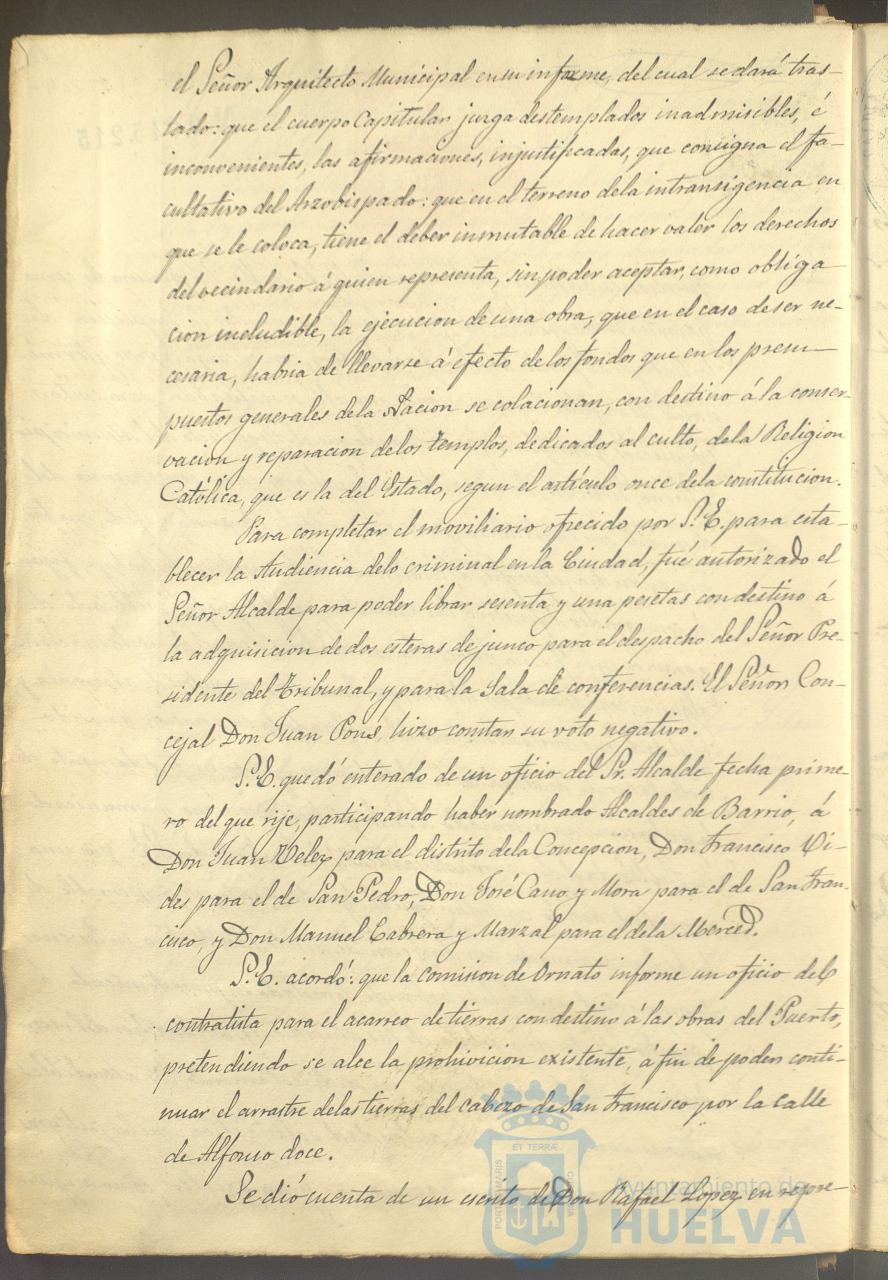 el Señor Arquitecto Municipal en su informe, del cual se dará tras-
lado: que el cuerpo Capitular juzga destemplados inadmisibles, é
inconvenientes, las afirmaciones, injustificadas, que consigna el fa-
cultativo del Arzobispado: que en el terreno dela intransigencia en
que se le coloca, tiene el deber inmutable de hacer valer los derechos
del vecindario á quien representa, sin poder aceptar, como obliga
cion ineludible, la ejecucion de una obra, que en el caso de ser ne-
cesaria, habria de llevarse á efecto de los fondos que en los presu-
puestos generales dela Nacion se colacionan, con destino á la conser-
vacion y reparacion delos templos, dedicados al culto, dela Religion
Católica, que es la del Estado, segun el artículo once dela constitucion.
Para completar el moviliario ofrecido por S.E. para esta-
blecer la Audiencia delo criminal en la Ciudad, fué autorizado el
Señor Alcalde para poder librar sesenta y una pesetas con destino á
la adquisicion de dos esteras de junco para el despacho del Señor Pre-
sidente del Tribunal, y para la Sala de conferencias. El Señor Con-
cejal Don Juan Pons, hizo constar su voto negativo.
S.E. quedó enterado de un oficio del Sr. Alcalde fecha prime-
ro del que rije, participando haber nombrado Alcaldes de Barrio, á
Don Juan Velez para el distrito dela Concepcion, Don Francisco Vi-
des para el de San Pedro, Don José Cano y Mora para el de San Fran-
cisco, y Don Manuel Cabrera y Marzal para el dela Merced.
S.E. acordó: que la comision de Ornato informe un oficio del
contratista para el acarreo de tierras con destino á las obras del Puerto,
pretendiendo se alce la prohivicion existente, á fin de poder conti-
nuar el arrastre delas tierras del cabezo de San Francisco por la calle
de Alfonso doce.
Se dió cuenta de un escrito de Don Rafael Lopez en repre-
ET TERRÆ
PORTUS MARIS
CUSTODIA
Ayuntamiento de
HUELVA